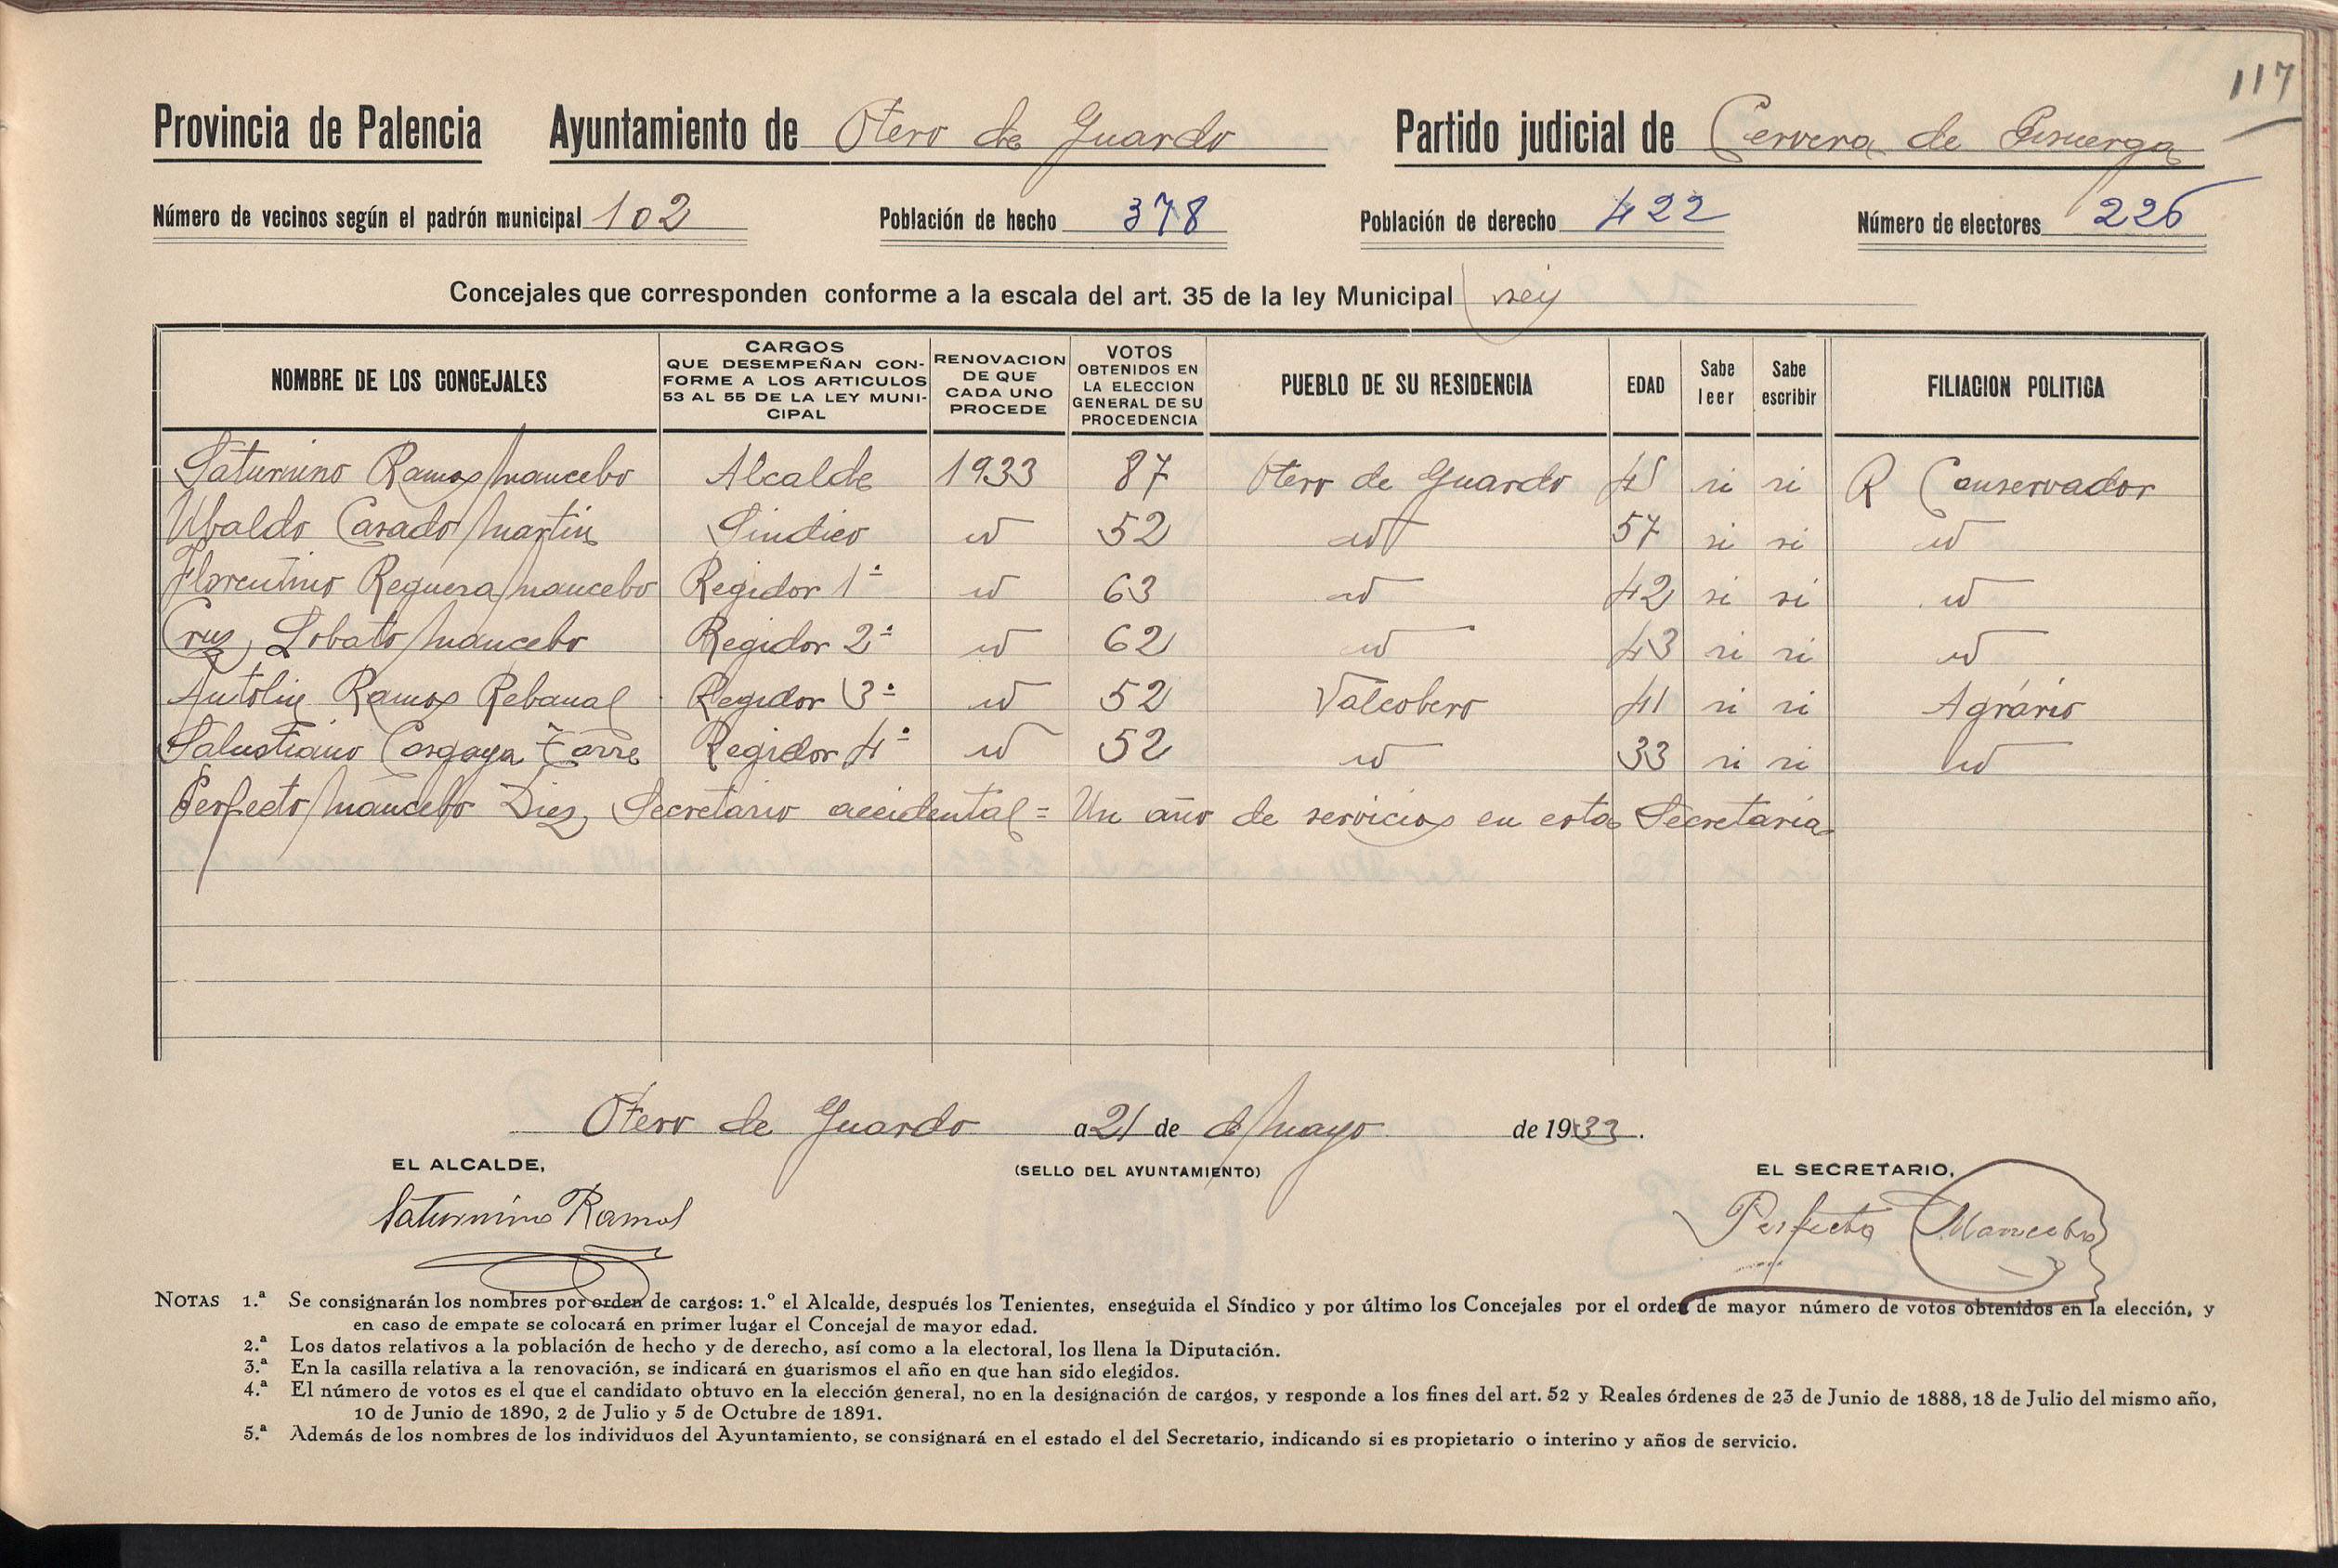 117
Provincia de Palencia Ayuntamiento de Otero de Guardo Partido judicial de Cervera de Pisuerga
Número de vecinos según el padrón municipal 102 Población de hecho 378 Población de derecho 422 Número de electores 226
Concejales que corresponden conforme a la escala del art. 35 de la ley Municipal seis
NOMBRE DE LOS CONCEJALES CARGOS QUE DESEMPEÑAN CONFORME A LOS ARTICULOS 53 AL 55 DE LA LEY MUNICIPAL RENOVACION DE QUE CADA UNO PROCEDE VOTOS OBTENIDOS EN LA ELECCION GENERAL DE SU PROCEDENCIA PUEBLO DE SU RESIDENCIA EDAD Sabe leer Sabe escribir FILIACION POLITICA
Saturnino Ramos Mancebo Alcalde 1933 87 Otero de Guardo 45 si si R Conservador
Ubaldo Casado Martin Sindico id 52 id 57 si si id
Florentino Reguera Mancebo Regidor 1º id 63 id 42 si si id
Cruz Lobato Mancebo Regidor 2º id 62 id 43 si si id
Antolin Ramos Rebanal Regidor 3º id 52 Valcobero 41 si si Agrário
Salustiano Casgaya Torre Regidor 4º id 52 id 33 si si id
Perfecto Mancebo Diez, Secretario accidental = Un año de servicios en esta Secretaria
Otero de Guardo a 21 de de Mayo de 1933.
EL ALCALDE, (SELLO DEL AYUNTAMIENTO) EL SECRETARIO,
Saturnino Ramos Perfecto Mancebo
NOTAS 1.ª Se consignarán los nombres por orden de cargos: 1.º el Alcalde, después los Tenientes, enseguida el Síndico y por último los Concejales por el orden de mayor número de votos obtenidos en la elección, y
en caso de empate se colocará en primer lugar el Concejal de mayor edad.
2.ª Los datos relativos a la población de hecho y de derecho, así como a la electoral, los llena la Diputación.
3.ª En la casilla relativa a la renovación, se indicará en guarismos el año en que han sido elegidos.
4.ª El número de votos es el que el candidato obtuvo en la elección general, no en la designación de cargos, y responde a los fines del art. 52 y Reales órdenes de 23 de Junio de 1888, 18 de Julio del mismo año,
10 de Junio de 1890, 2 de Julio y 5 de Octubre de 1891.
5.ª Además de los nombres de los individuos del Ayuntamiento, se consignará en el estado el del Secretario, indicando si es propietario o interino y años de servicio.